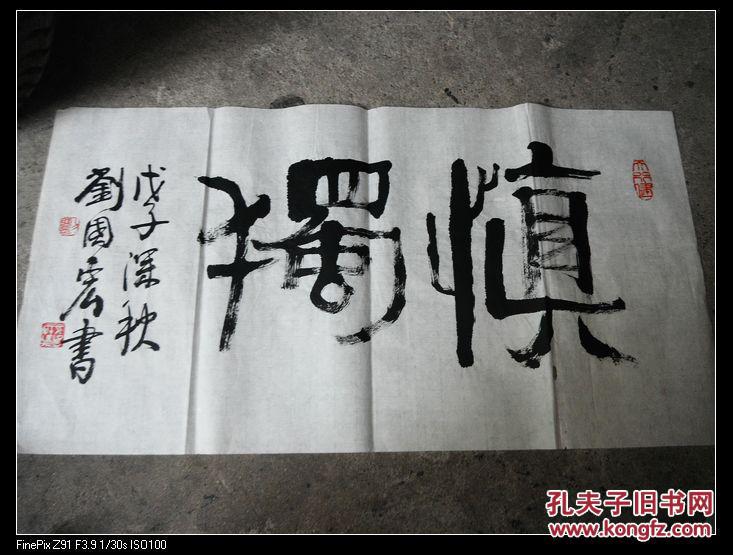 慎獨
戊子深秋
劉國宏書
孔夫子旧书网
www.kongfz.com
FinePix Z91 F3.9 1/30s ISO100